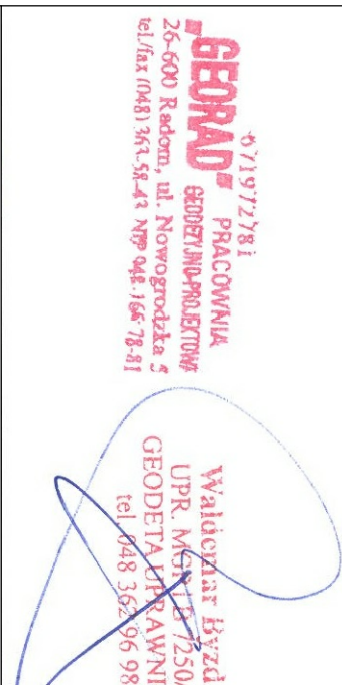 671972781
„GEORAD” PRACOWNIA
GEODEZYJNO-PROJEKTOWA
26-600 Radom, ul. Nowogrodzka 5
tel./fax (048) 363-58-43 NIP 948-166-78-81
Waldemar Byzd
UPR. 7250/
GEODETA UPRAWNI
tel. 048 362 96 98